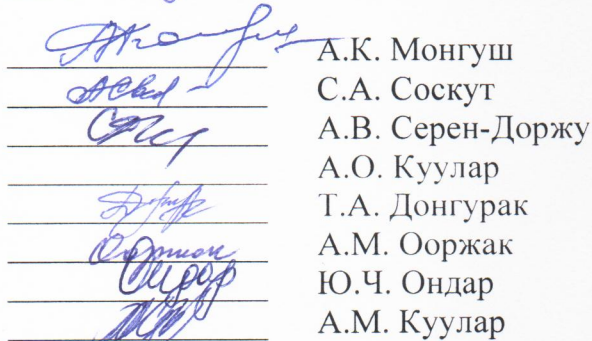 А.К. Монгуш
С.А. Соскут
А.В. Серен-Доржу
А.О. Куулар
Т.А. Донгурак
Ооржак А.М. Ооржак
Ондар Ю.Ч. Ондар
А.М. Куулар